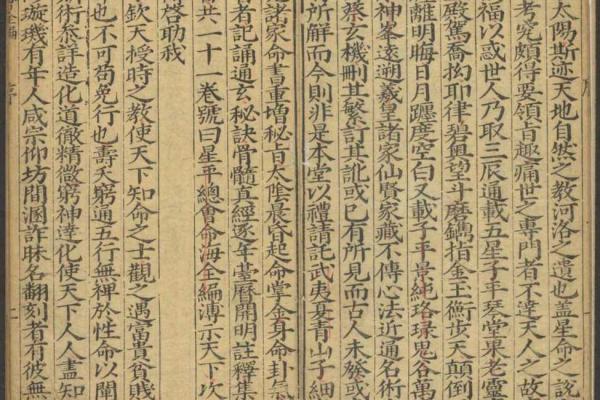 太陽斯迹天地自然之教河洛之遺也蓋星命之說
考究頗得要領旨趣痛世之專門者不達天人之故
福以惑世人乃取三辰通載五星子平琴堂果老靈
殿駕喬拗耶律碧與望斗磨鐫指金玉衡步天顛倒
經離明晦日月躔度空白又載子平景純珞琭鬼谷萬
神峯遂遡羲皇諸家仙賢家藏不傳心法近通名術
蔡玄機刪其繁訂其訛或已有所見而古人未發或
所解而今則非是本堂以禮請託武夷夏青山子細
諸家命書重增秘旨太陰晨昏起命掌金身命卦氣
者記誦通玄秘訣骨髓真經逐年臺曆開明註釋集
共一十一卷號曰星平總會命海全編溥示天下次
啓助我
欽天授時之教使天下知命之士觀之遇富貴貧賤
也不可苟免行也壽夭窮通五行無裨於性命以闡
術泰詳造化道徹精微窮神達化使天下人人盡知
璇璣有年人咸宗仰坊間溷詐昧名翻刻者有彼無
序 二